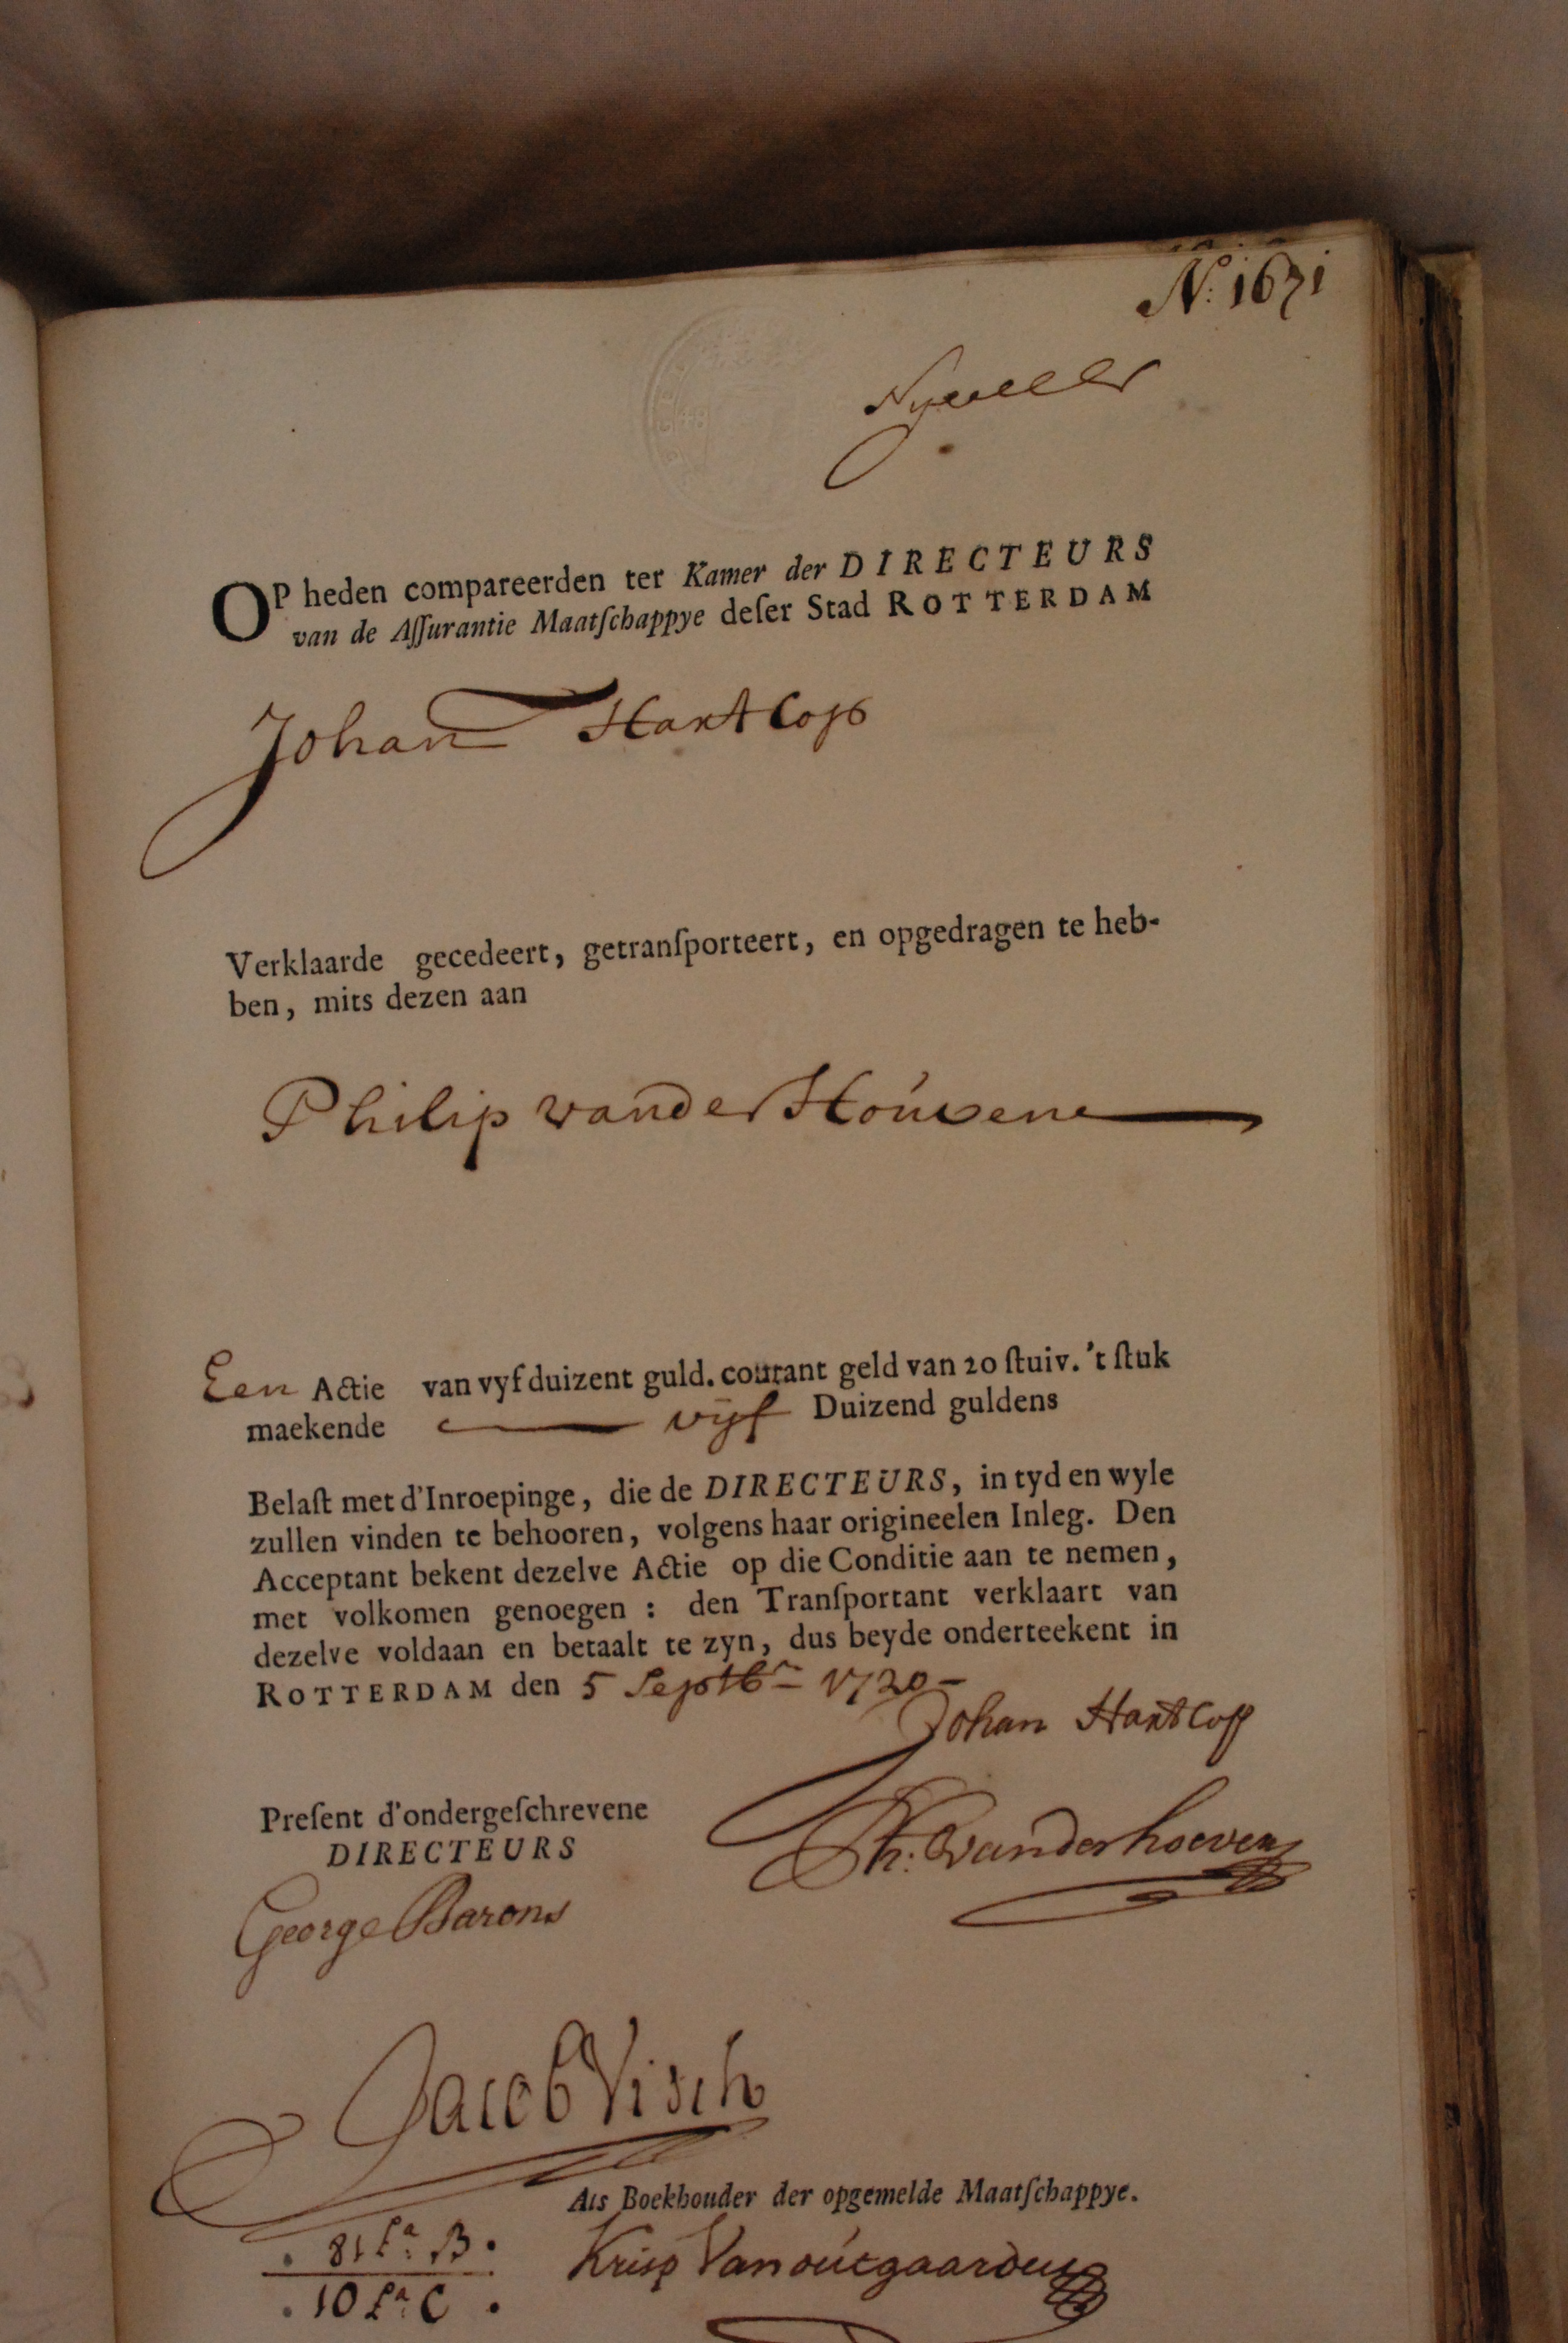 N:o 1671
OP heden compareerden ter Kamer der DIRECTEURS
van de Aſſurantie Maatſchappye deſer Stad ROTTERDAM
Johan Hartcop
Verklaarde gecedeert, getranſporteert, en opgedragen te heb-
ben, mits dezen aan
Philip vander Houvene
Een Actie van vyf duizent guld. courant geld van 20 ſtuiv. 't ſtuk
maekende vijf Duizend guldens
Belaſt met d'Inroepinge, die de DIRECTEURS, in tyd en wyle
zullen vinden te behooren, volgens haar origineelen Inleg. Den
Acceptant bekent dezelve Actie op die Conditie aan te nemen,
met volkomen genoegen : den Tranſportant verklaart van
dezelve voldaan en betaalt te zyn, dus beyde onderteekent in
ROTTERDAM den 5 Septbr 1720
Johan Hartcop
Ph: vanderhoeven
Preſent d'ondergeſchrevene
DIRECTEURS
George Barons
Jacob Visch
Als Boekhouder der opgemelde Maatſchappye.
81 La: B.
Krisp Vanoutgaarden
10 La: C.